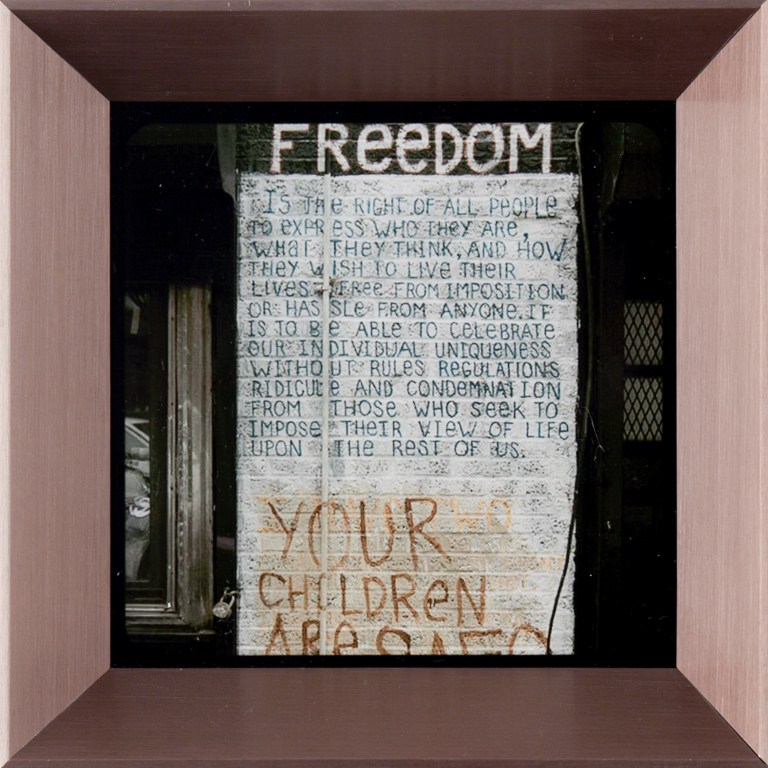 FReeDOM
IS THe RIGHT OF ALL PEOPLE
TO EXPRESS WHO THEY ARE,
WHAT THEY THINK, AND HOW
THEY WISH TO LIVE THEIR
LIVES. FREE FROM IMPOSITION
OR HASSLE FROM ANYONE. IT
IS TO BE ABLE TO CELEBRATE
OUR INDIVIDUAL UNIQUENESS
WITHOUT RULES REGULATIONS
RIDICULE AND CONDEMNATION
FROM THOSE WHO SEEK TO
IMPOSE THEIR VIEW OF LIFE
UPON THE REST OF US.
YOUR
CHILDReN
ARe SAFe